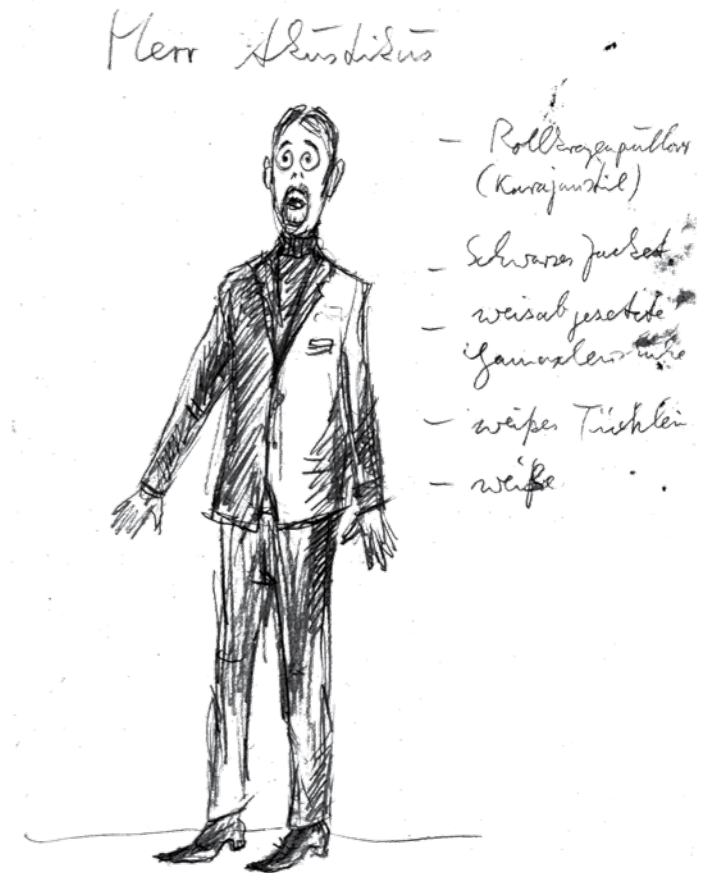 Herr Akustikus
– Rollkragenpullover
(Karajanstil)
– Schwarzes Jacket
– weisabgesetzte
– weißes Tüchlein
– weiße